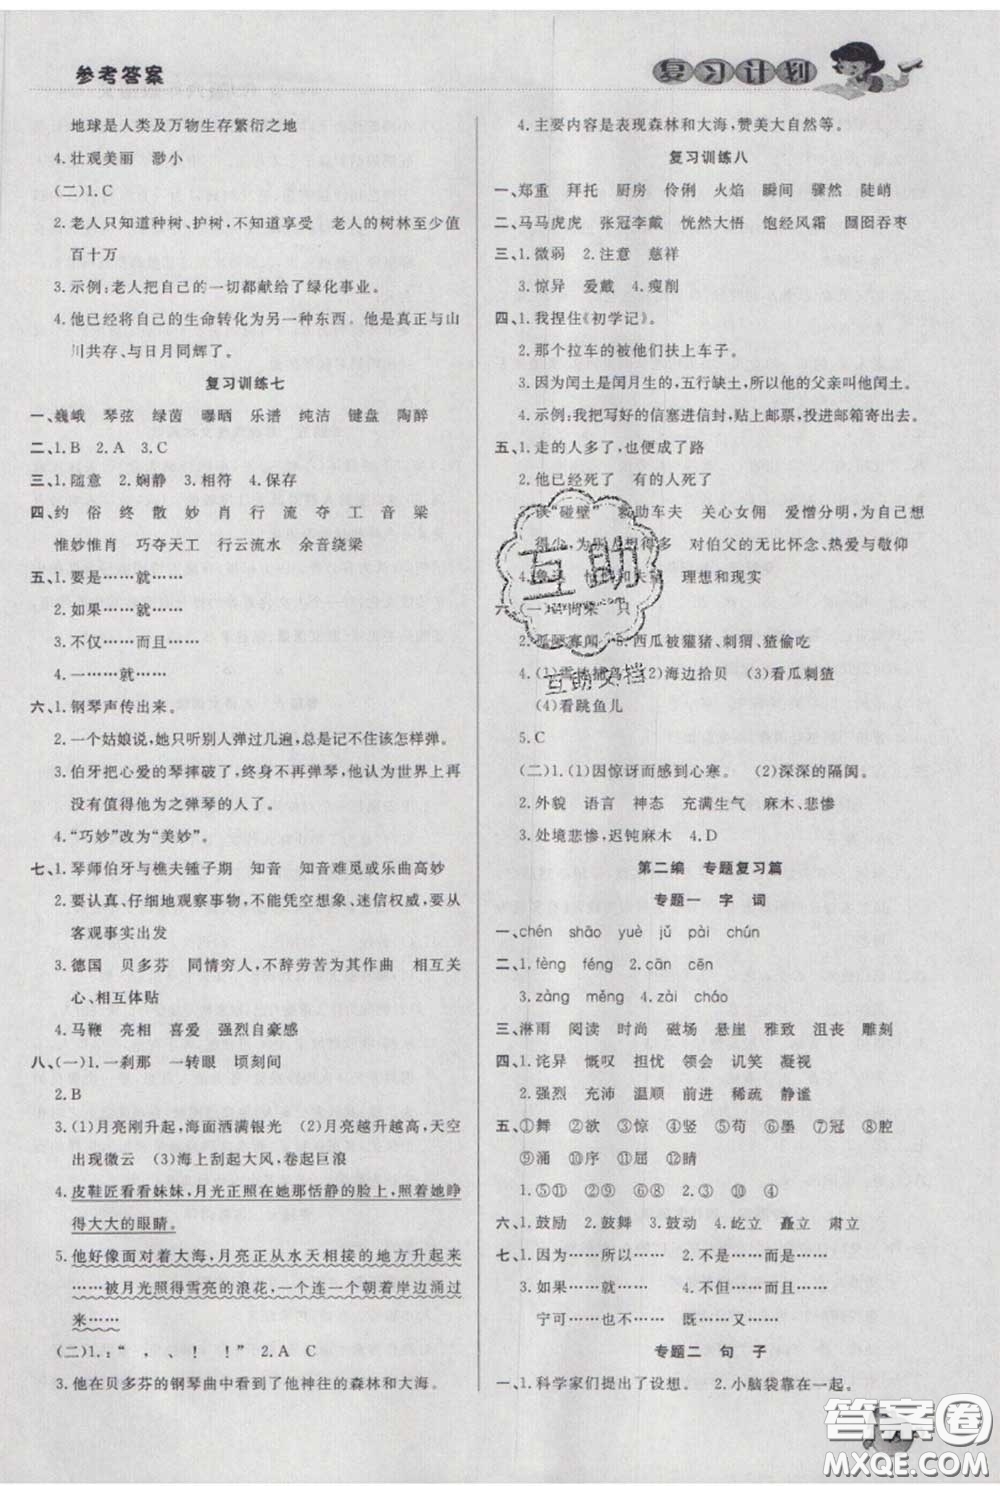 参考答案
复习计划
地球是人类及万物生存繁衍之地
4.壮观美丽 渺小
(二)1.C
2.老人只知道种树、护树,不知道享受 老人的树林至少值
百十万
3.示例:老人把自己的一切都献给了绿化事业。
4.他已经将自己的生命转化为另一种东西。他是真正与山
川共存、与日月同辉了。
复习训练七
一、巍峨 琴弦 绿茵 曝晒 乐谱 纯洁 键盘 陶醉
二、1.B 2.A 3.C
三、1.随意 2.娴静 3.相符 4.保存
四、约 俗 终 散 妙 肖 行 流 夺 工 音 梁
惟妙惟肖 巧夺天工 行云流水 余音绕梁
五、1.要是……就……
2.如果……就……
3.不仅……而且……
4.一……就……
六、1.钢琴声传出来。
2.一个姑娘说,她只听别人弹过几遍,总是记不住该怎样弹。
3.伯牙把心爱的琴摔破了,终身不再弹琴,他认为世界上再
没有值得他为之弹琴的人了。
4.“巧妙”改为“美妙”。
七、1.琴师伯牙与樵夫锺子期 知音 知音难觅或乐曲高妙
2.要认真、仔细地观察事物,不能凭空想象、迷信权威,要从
客观事实出发
3.德国 贝多芬 同情穷人,不辞劳苦为其作曲 相互关
心、相互体贴
4.马鞭 亮相 喜爱 强烈自豪感
八、(一)1.一刹那 一转眼 顷刻间
2.B
3.(1)月亮刚升起,海面洒满银光 (2)月亮越升越高,天空
出现微云 (3)海上刮起大风,卷起巨浪
4.皮鞋匠看看妹妹,月光正照在她那恬静的脸上,照着她睁
得大大的眼睛。
5.他好像面对着大海,月亮正从水天相接的地方升起来
……被月光照得雪亮的浪花,一个连一个朝着岸边涌过
来……
(二)1.:“ , 、 ! !” 2.A C
3.他在贝多芬的钢琴曲中看到了他神往的森林和大海。
4.主要内容是表现森林和大海,赞美大自然等。
复习训练八
一、郑重 拜托 厨房 伶俐 火焰 瞬间 骤然 陡峭
二、马马虎虎 张冠李戴 恍然大悟 饱经风霜 囫囵吞枣
三、1.微弱 2.注意 慈祥
3.惊异 爱戴 4.瘦削
四、1.我捏住《初学记》。
2.那个拉车的被他们扶上车子。
3.因为闰土是闰月生的,五行缺土,所以他的父亲叫他闰土。
4.示例:我把写好的信塞进信封,贴上邮票,投进邮箱寄出去。
五、1.走的人多了,也便成了路
2.他已经死了 有的人死了
谈“碰壁” 救助车夫 关心女佣 爱憎分明,为自己想
得少,为别人想得多 对伯父的无比怀念、热爱与敬仰
4. 理想和现实
六、(一)
3.西瓜被獾猪、刺猬、猹偷吃
4.(1)雪地捕鸟 (2)海边拾贝 (3)看瓜刺猹
(4)看跳鱼儿
5.C
(二)1.(1)因惊讶而感到心寒。 (2)深深的隔阂。
2.外貌 语言 神态 充满生气 麻木、悲惨
3.处境悲惨,迟钝麻木 4.D
第二编 专题复习篇
专题一 字 词
一、chén shāo yuè jǔ pài chún
二、1.fèng féng 2.cān cēn
3.zàng měng 4.zài cháo
三、淋雨 阅读 时尚 磁场 悬崖 雅致 沮丧 雕刻
四、1.诧异 慨叹 担忧 领会 讥笑 凝视
2.强烈 充沛 温顺 前进 稀疏 静谧
五、①舞 ②欲 ③惊 ④竖 ⑤苟 ⑥墨 ⑦冠 ⑧腔
⑨涌 ⑩序 ⑪宣 ⑫恩
1.⑤⑪ ①⑨ ⑥⑧ ⑦② ③ ⑩④
六、1.鼓励 2.鼓舞 3.鼓动 4.屹立 矗立 肃立
七、1.因为……所以…… 2.不是……而是……
3.如果……就…… 4.不但……而且……
宁可……也不…… 既……又……
专题二 句 子
一、1.科学家们提出了设想。 2.小脑袋靠在一起。
互助
互助文档
答案圈
MXQE.COM